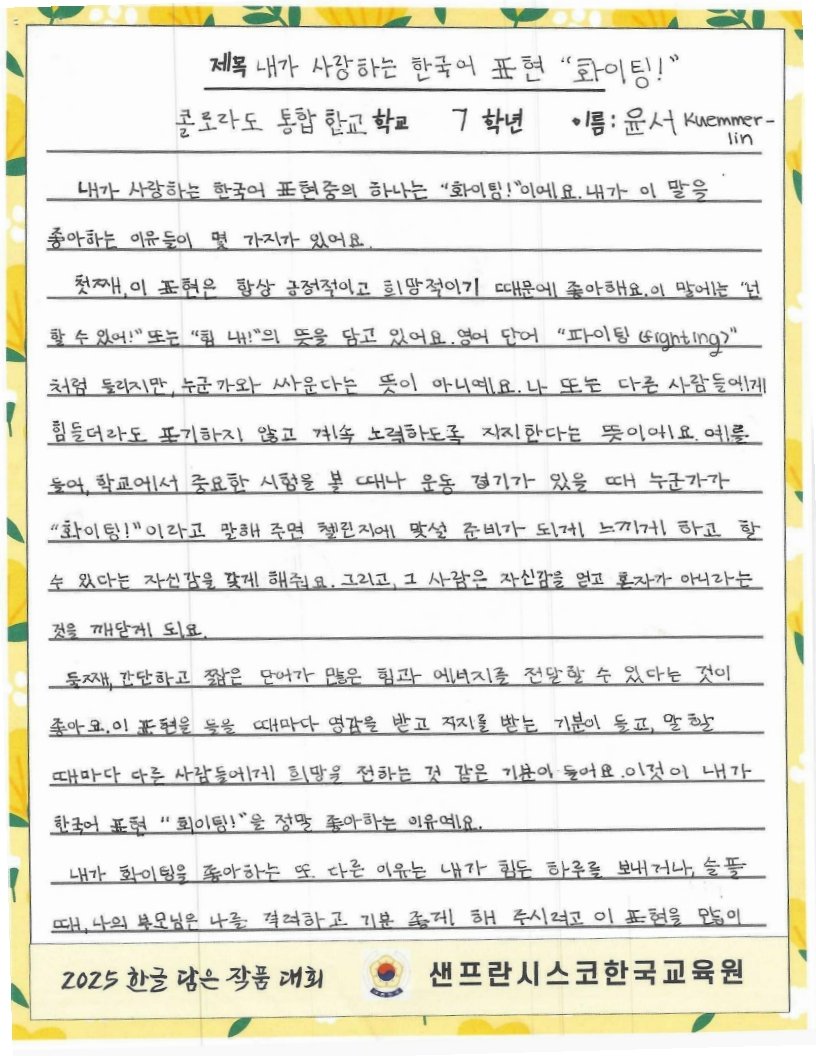 제목 내가 사랑하는 한국어 표현 “화이팅!”
콜로라도 통합 한교 학교 7 학년 이름: 윤서 Kuemmer-
lin
내가 사랑하는 한국어 표현중의 하나는 “화이팅!”이에요. 내가 이 말을
좋아하는 이유들이 몇 가지가 있어요.
첫째, 이 표현은 항상 긍정적이고 희망적이기 때문에 좋아해요. 이 말에는 “넌
할 수 있어!” 또는 “힘 내!”의 뜻을 담고 있어요. 영어 단어 “파이팅 (fighting)”
처럼 들리지만, 누군가와 싸운다는 뜻이 아니예요. 나 또는 다른 사람들에게
힘들더라도 포기하지 않고 계속 노력하도록 지지한다는 뜻이에요. 예를
들어, 학교에서 중요한 시험을 볼 때나 운동 경기가 있을 때 누군가가
“화이팅!”이라고 말해 주면 첼린지에 맞설 준비가 되게 느끼게 하고 할
수 있다는 자신감을 갖게 해줘요. 그리고, 그 사람은 자신감을 얻고 혼자가 아니라는
것을 깨닫게 되요.
둘째, 간단하고 짧은 단어가 많은 힘과 에너지를 전달할 수 있다는 것이
좋아요. 이 표현을 들을 때마다 영감을 받고 지지를 받는 기분이 들고, 말할
때마다 다른 사람들에게 희망을 전하는 것 같은 기분이 들어요. 이것이 내가
한국어 표현 “화이팅!”을 정말 좋아하는 이유예요.
내가 화이팅을 좋아하는 또 다른 이유는 내가 힘든 하루를 보내거나, 슬플
때, 나의 부모님은 나를 격려하고 기분 좋게 해 주시려고 이 표현을 많이
2025 한글 담은 작품 대회
샌프란시스코한국교육원